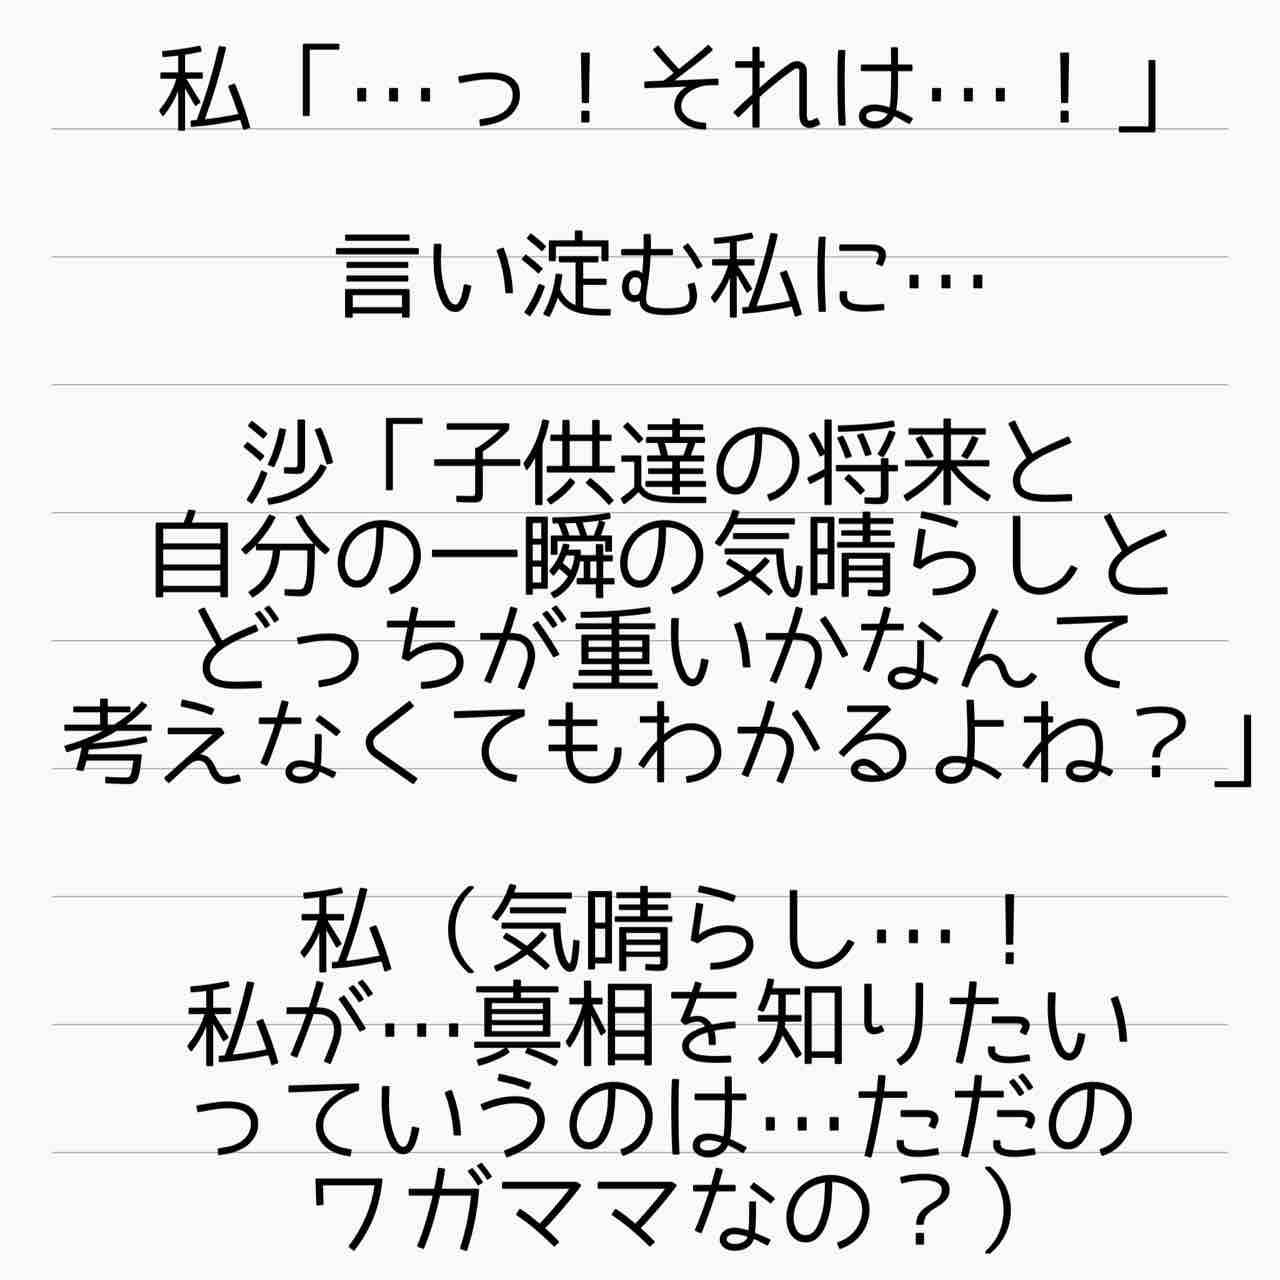 私「…っ！それは…！」
言い淀む私に…
沙「子供達の将来と
自分の一瞬の気晴らしと
どっちが重いかなんて
考えなくてもわかるよね？」
私（気晴らし…！
私が…真相を知りたい
っていうのは…ただの
ワガママなの？）